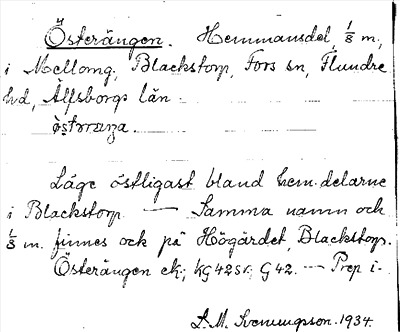 Österängen. Hemmansdel, 1/8 m,
i Mellomg, Blackstorp, Fors sn, Flundre
hd, Älfsborgs län.
Läge östligast bland hem. delarne
i Blackstorp. — Samma namn och
1/8 m. finnes ock på Högärdet, Blackstorp.
Österängen ek; G 42. — Prep i.
L. M. Svenungson. 1934.